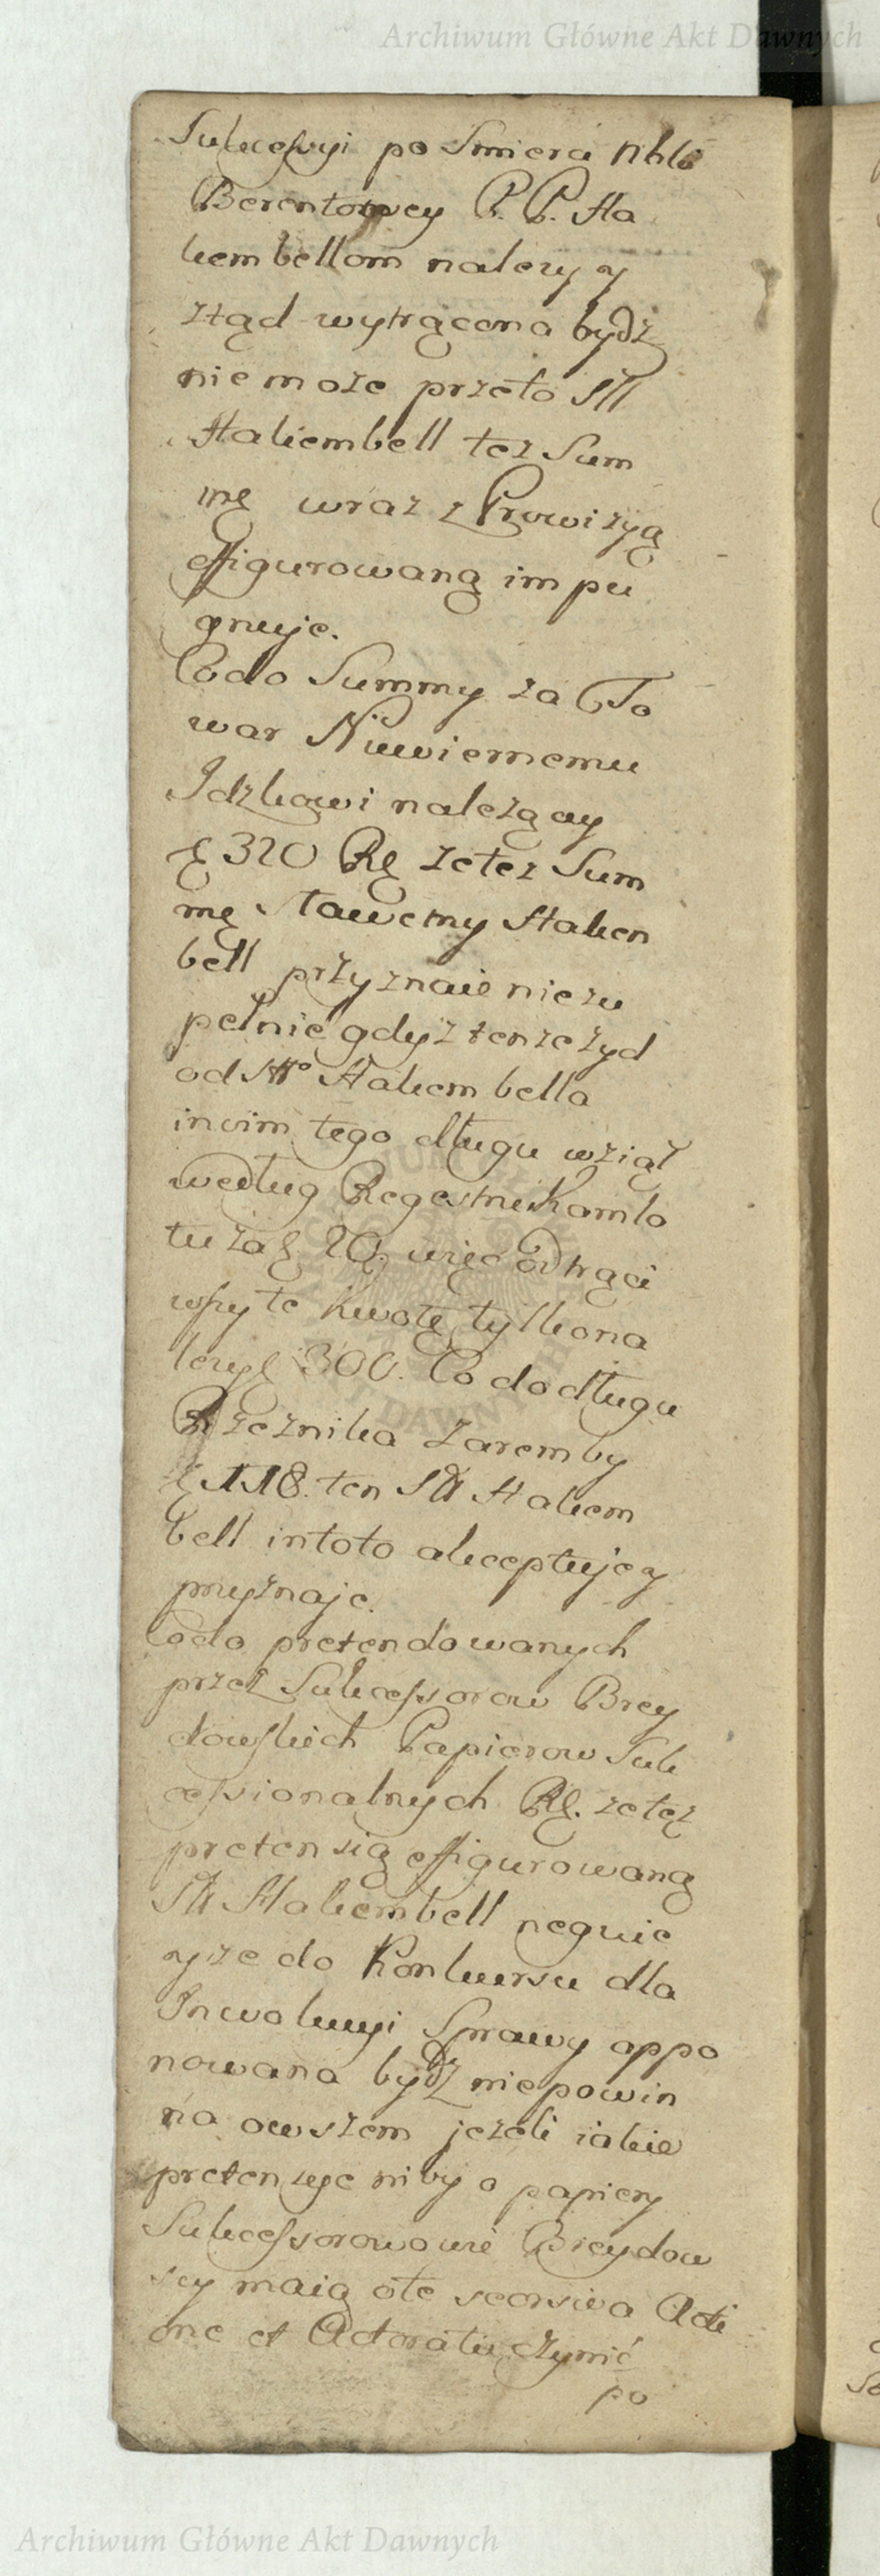 Archiwum Główne Akt Dawnych
Sukcessyi po Smierci
Berentowey P. P. Ha
kembellom nalezy y
ztąd wytrącona bydź
nie może przeto Sł
Hakiembell też Sum
mę wraz z Prowizyą
effigurowaną impu
gnuje.
Co do Summy za To
war Niewiernemu
Idzkowi należącey
ł 320 Rg że też Sum
mę Sławetny Haken
bell przyznaie nie zu
pełnie gdyż tenże żyd
od Sło Hakembella
invim tego długu wziął
według Regestru
tu za ł 20. więc odtrąci
wszy te kwotę tylko na
leży ł 300. Co do długu
Rzeźnika Zaremby
ł 118. ten Sł Hakiem
bell in toto akceptuje y
przyznaje.
Co do pretendowanych
przez Sukcessorow Brey
dowskich Papierow Suk
cessionalnych Rg. że też
pretensią effigurowaną
Sł Hakembell neguie
y że do Konkursu dla
Inwolucyi Sprawy appo
nowana bydź niepowin
na owszem jeżeli iakie
pretensye niby o papiery
Sukcessorowowie Breydow
scy maią ote seorsiva Acti
one et Actoratu czynić
po
Archiwum Główne Akt Dawnych